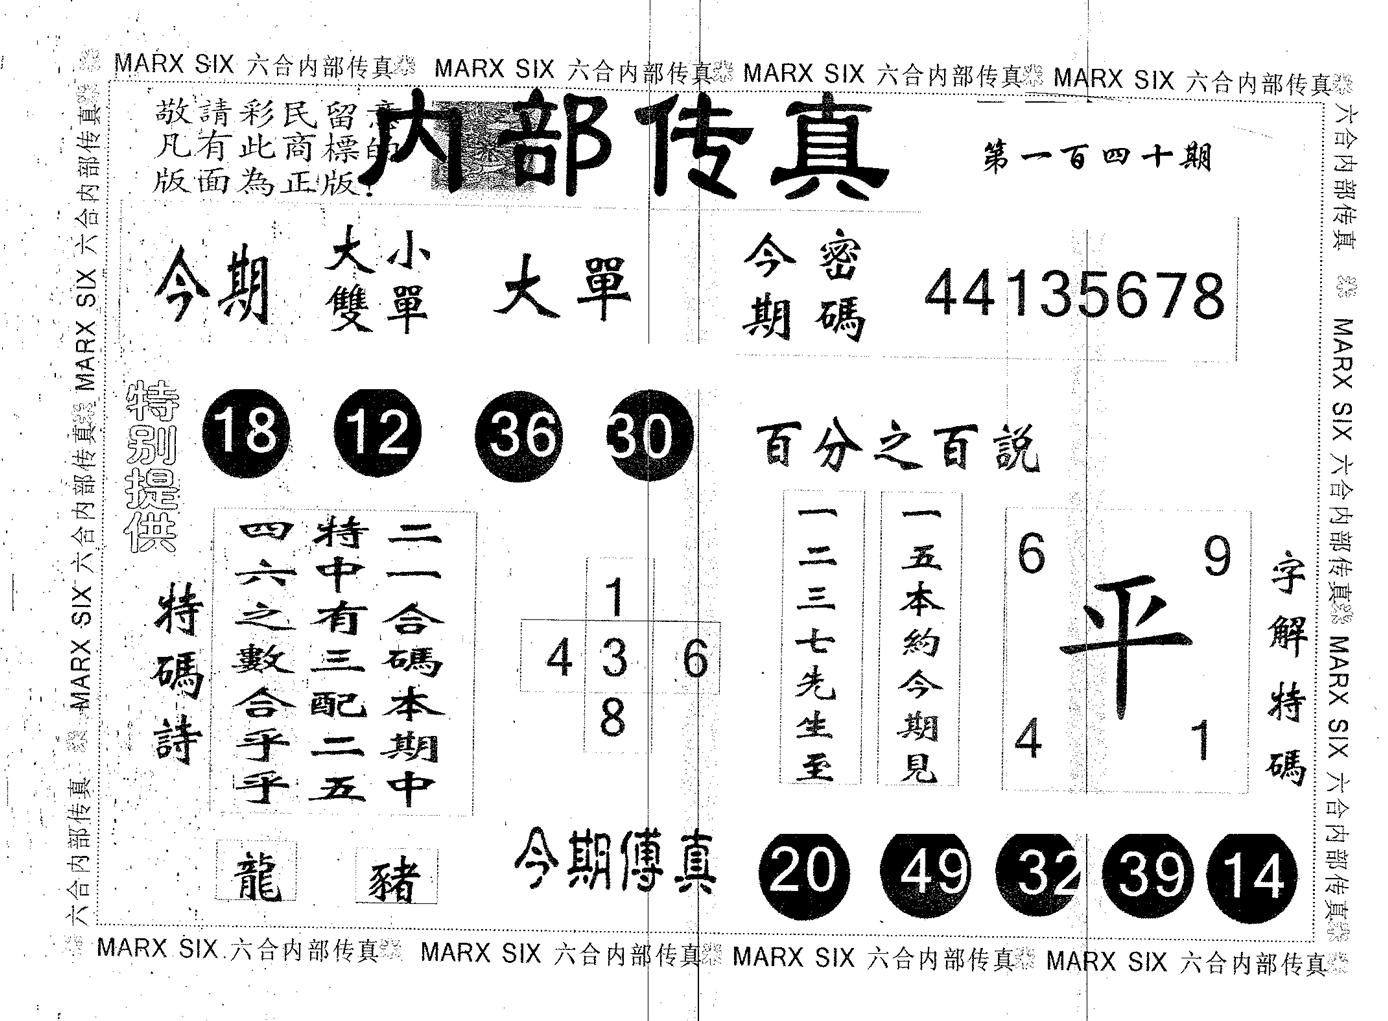 MARX SIX 六合内部传真 MARX SIX 六合内部传真 MARX SIX 六合内部传真 MARX SIX 六合内部传真
敬請彩民留意
凡有此商標的
版面為正版!
内部传真
第一百四十期
今期
大小
雙單
大單
今密
期碼
44135678
特别提供
18 12 36 30
百分之百説
特碼詩
二一合碼本期中
特中有三配二五
四六之數合乎乎
龍 豬
1
4 3 6
8
今期傳真
一五本約今期見
一二三七先生至
6 9
平
4 1
字解特碼
20 49 32 39 14
六合内部传真 MARX SIX 六合内部传真 MARX SIX 六合内部传真
六合内部传真 MARX SIX 六合内部传真 MARX SIX 六合内部传真
MARX SIX 六合内部传真 MARX SIX 六合内部传真 MARX SIX 六合内部传真 MARX SIX 六合内部传真